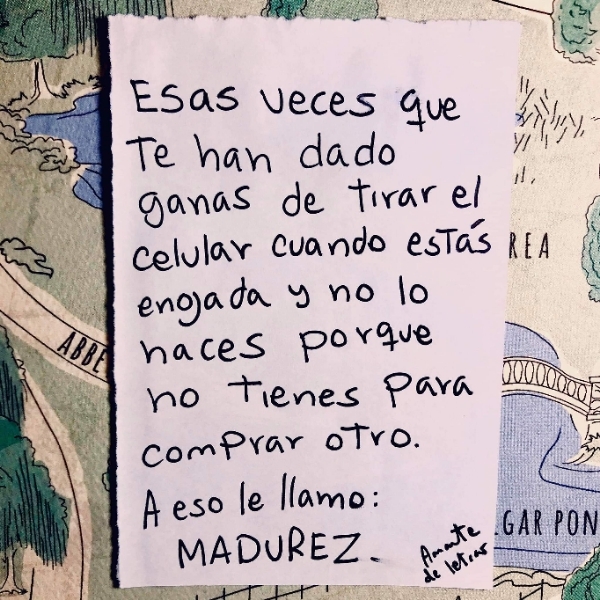 Esas veces que
Te han dado
ganas de tirar el
celular cuando estás
enojada y no lo
haces porque
no tienes para
comprar otro.
A eso le llamo:
MADUREZ.
Amante
de letras
REA
ABBE
LGAR PON